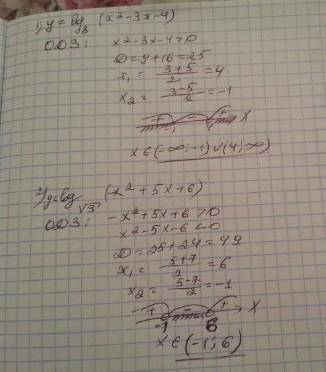 1) y = log₈ (x²-3x-4)
ОДЗ: x²-3x-4>0
D=9+16=25
x₁ = (3+5)/2 = 4
x₂ = (3-5)/2 = -1
+ - + X
x∈(-∞;-1)∪(4;∞)
2) y=log√3 (x²+5x+6)
ОДЗ: -x²+5x+6>0
x²-5x-6<0
D=25+24=49
x₁ = (5+7)/2 = 6
x₂ = (5-7)/2 = -1
+ - + X
-1 6
x∈(-1;6)